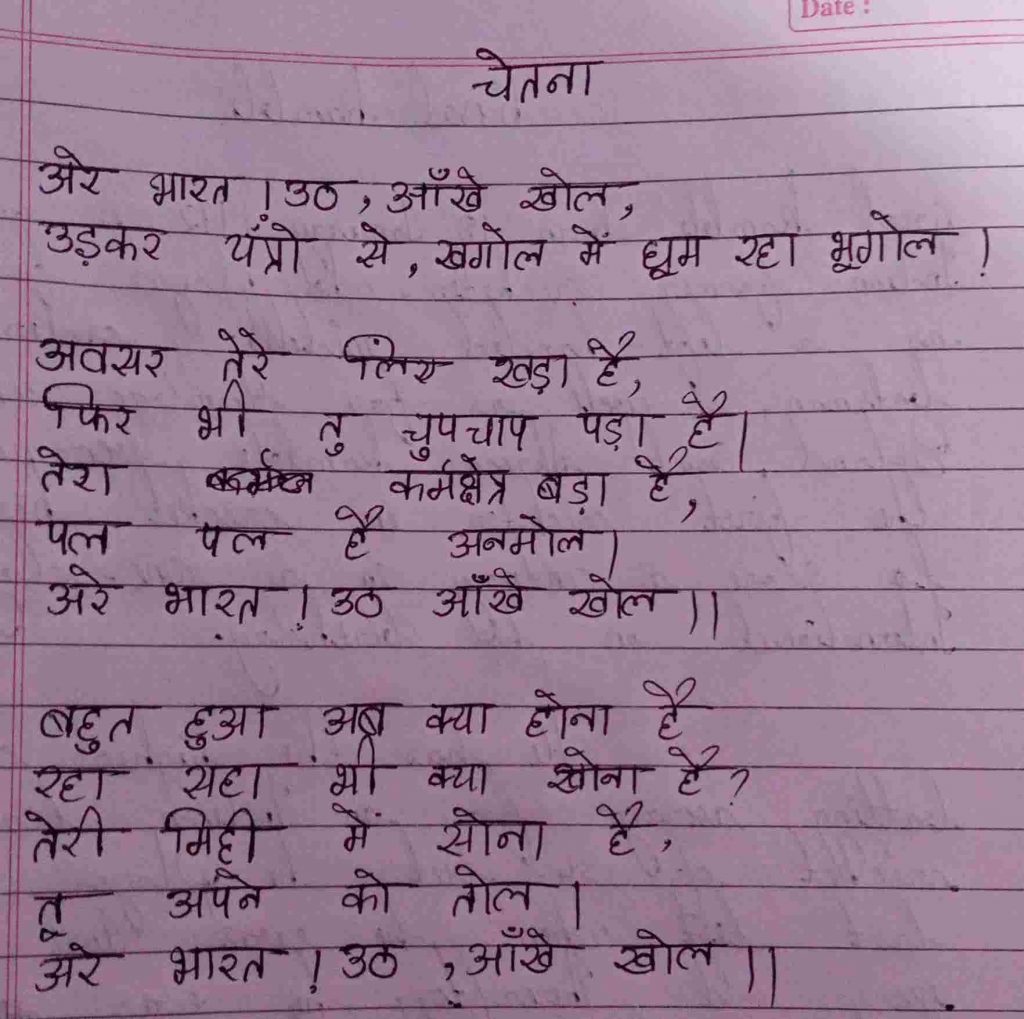 Date :
चेतना
अरे भारत ! उठ , आँखे खोल ,
उड़कर यंत्रो से , खगोल में घूम रहा भूगोल !
अवसर तेरे लिए खड़ा है ,
फिर भी तु चुपचाप पड़ा है ।
तेरा कर्मक्षेत्र बड़ा है ,
पल पल है अनमोल ।
अरे भारत ! उठ आँखे खोल ।।
बहुत हुआ अब क्या होना है
रहा सहा भी क्या खोना है ?
तेरी मिट्टी में सोना है ,
तू अपने को तोल ।
अरे भारत ! उठ , आँखे खोल ।।